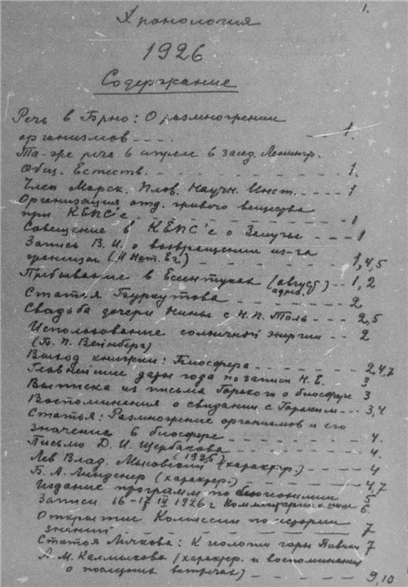 1.
Хронология
1926
Содержание
Речь в Брно: О размножении
организмов .... 1.
Та-же речь в апреле в засед. Ленингр.
Общ. Естеств. 1.
Член Морск. Плов. Научн. Инст. 1.
Организация отд. живого вещества
при КЕПС'е 1
Совещение в КЕПС'е о 1
Запись В.И. о возвращении из-за
границы (и Нат. Ег.) 1,4,5
Пребывание в Ессентуках (август) 1,2
Статья 2
Свадьба дочери Нины с Н.П. Толь 2,5
Использование солнечной энергии 2
(Б.П. Вейнберг)
Выход книжки: Биосфера 2,4,7
Главнейшие даты года по записи Н.Е. 3
Выписка из письма Горького о биосфере 3
Воспоминания о свидании с Горьким 3,4
Статья: Размножение организмов и его
значение в биосфере 4.
Письмо Д.И. Щербакова 4.
(1926)
Лев Влад. Мысовский (характер.) 4
Б.А. Линденер (характер.) 4,7
Издание программ по биогеохимии 5
Записи 16-17 1926 г 6
Открытие Комиссии по истории
знаний 7
Статья Личкова: К геологии горы 7
А.М. Калмыкова (характер. и воспоминания
о последних встречах) 9,10